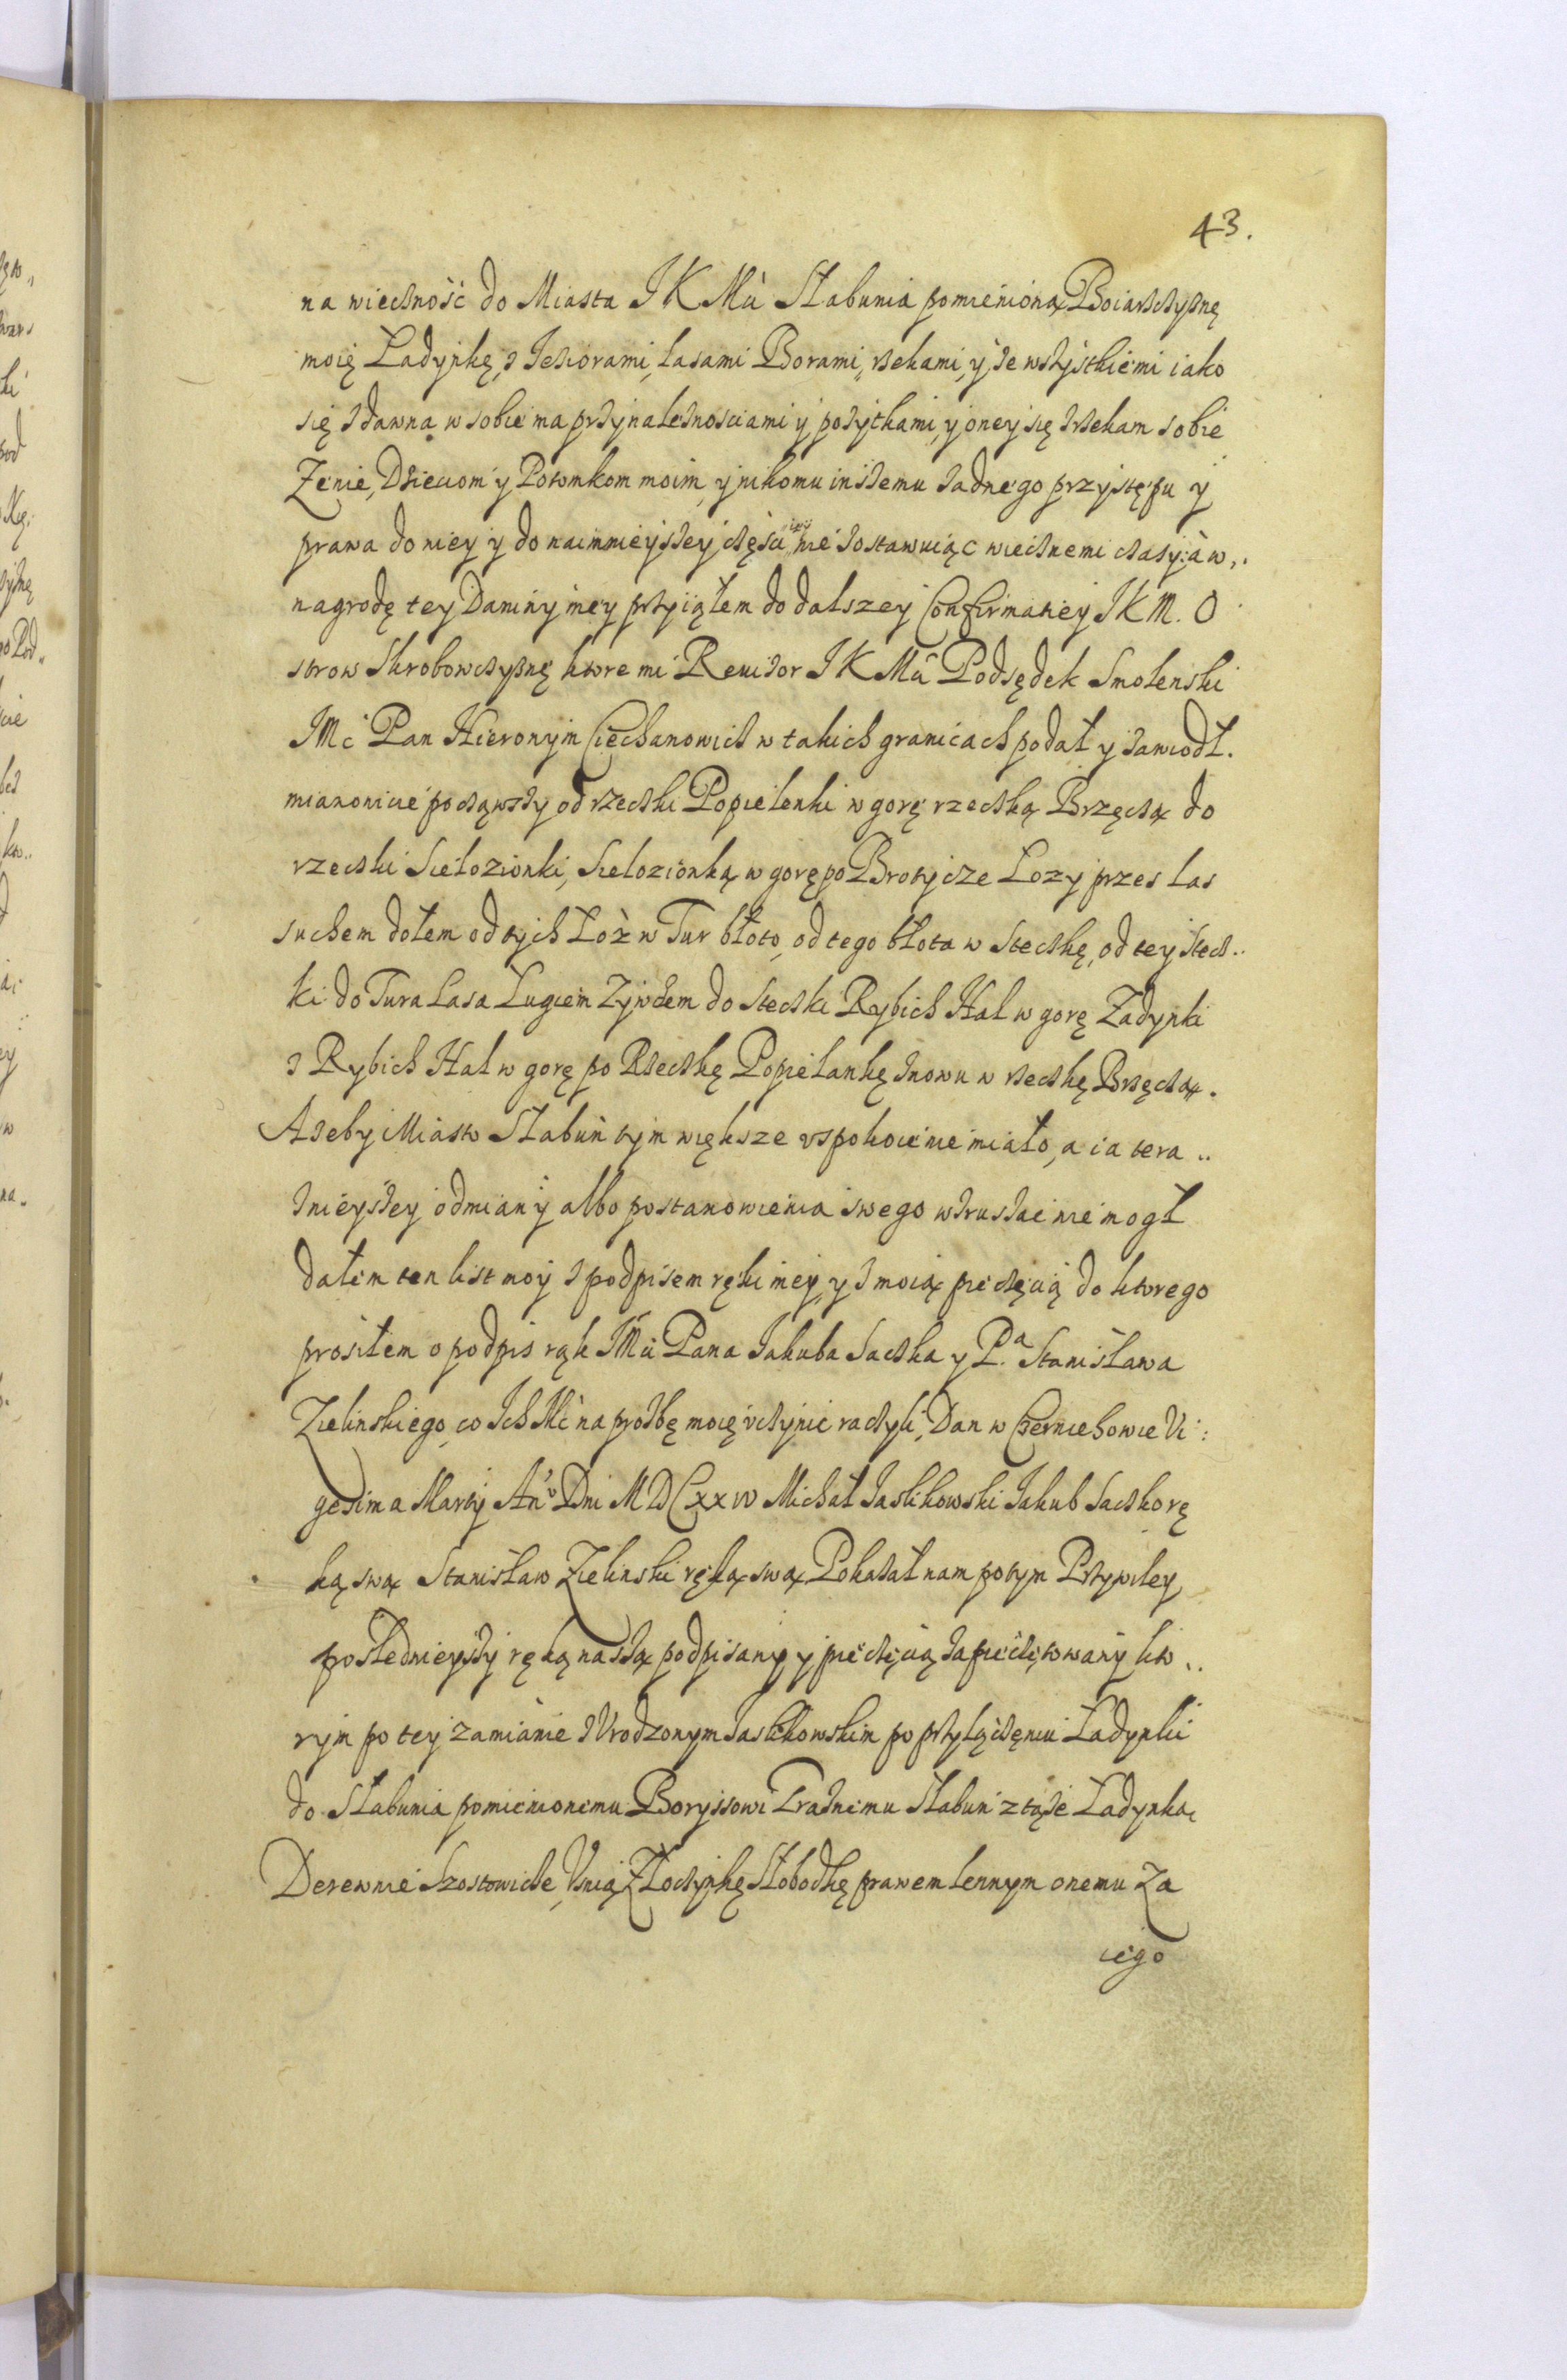 43.
na wieczność do Miasta J K Mći Słabunia pomienioną Boiarszczyznę
moię Ładynkę, z Jeziorami, lasami Borami, rzekami, y ze wszystkiemi iako
się zdawna w sobie ma przynależnosciami y pożytkami, y oney się zrzekam sobie
Zenie, Dzieciom y Potomkom moim, y nikomu inszemu żadnego przystępu y
prawa do niey y do naimnieyszey częsci nie zostawuiąc wiecznemi czasy: à w,,
nagrodę tey Daniny mey przyiąłem do dalszey Confirmatiey J K M. O
strow Skrobowczyznę ktore mi Reuizor J K Mći Podsędek Smolenski
JMć Pan Hieronym Ciechanowicz w takich granicach podał y zawiodł.
mianowicie począwszy od rzeczki Popielenki w gorę rzeczką Brzęczą do
rzeczki Siełozionki, Siełozionką w gorę po Brotycze Łozy przes las
suchem dołem od tych Łoz w Tur błoto, od tego błota w Steczkę, od tey stecz..
ki do Tura Lasa Ługiem Zywcem do Steczki Rybich Hal w gorę Zadynki
z Rybich Hal w gorę po Rzeczkę Popielankę znowu w rzeczkę Brzęczą.
Azeby Miasto Słabuń tym większe vspokoienie miało, a ia tera ..
znieyszey odmiany albo postanowienia swego wzruszac nie mogł
dałem ten list moy z podpisem ręki mey, y z moią pieczęcią do ktorego
prosiłem o podpis rąk JMći Pana Jakuba Saczka y P.a Stanisława
Zielinskiego, co Ich Mć na prozbę moię vczynić raczyli, Dan w Czerniehowie Vi:
gesima Martij Ano Dni MDCxxiv Michał Jaslikowski Jakub Saczko rę
ką swą Stanisław Zielinski ręką swą Pokazał nam potym Przywiley
poslednieyszy ręką naszą podpisany y pieczęcią zapieczętowany kto ..
rym po tey zamianie z Vrodzonym Jaslikowskim po przyłączeniu Ładynki
do Słabunia pomienionemu Boryssowi Graznemu Słabuń z tąże Ładynką
Derewnie Szostowicze, Vsnią Złoczynkę Słobodkę prawem lennym onemu za
iego